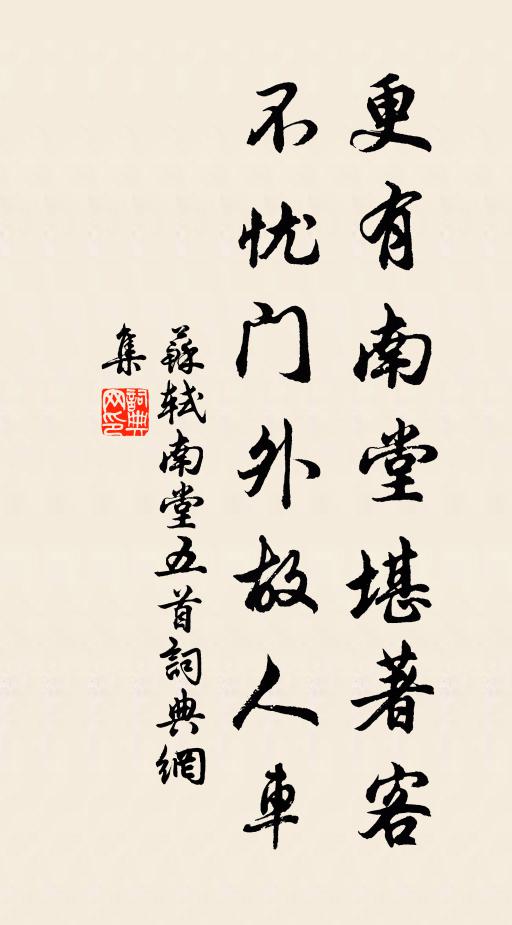 更有南堂堪著客
不忧门外故人車
蘇軾南堂五首詞典網
集
詞典
网印